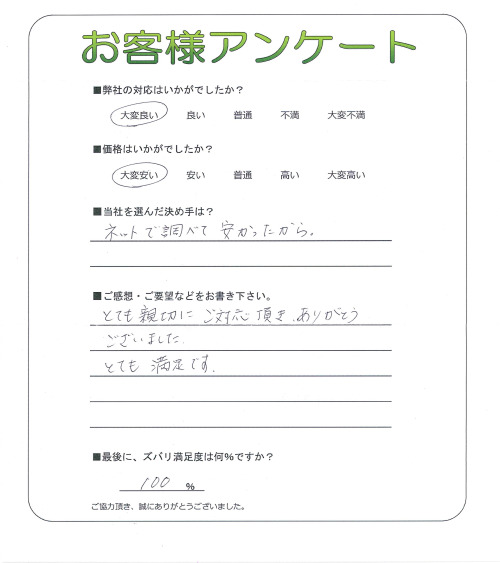 お客様アンケート
■弊社の対応はいかがでしたか？
大変良い 良い 普通 不満 大変不満
■価格はいかがでしたか？
大変安い 安い 普通 高い 大変高い
■当社を選んだ決め手は？
ネットで調べて 安かったから。
■ご感想・ご要望などをお書き下さい。
とても親切に ご対応 頂き、ありがとう
ございました.
とても 満足です.
■最後に、ズバリ満足度は何％ですか？
100 ％
ご協力頂き、誠にありがとうございました。